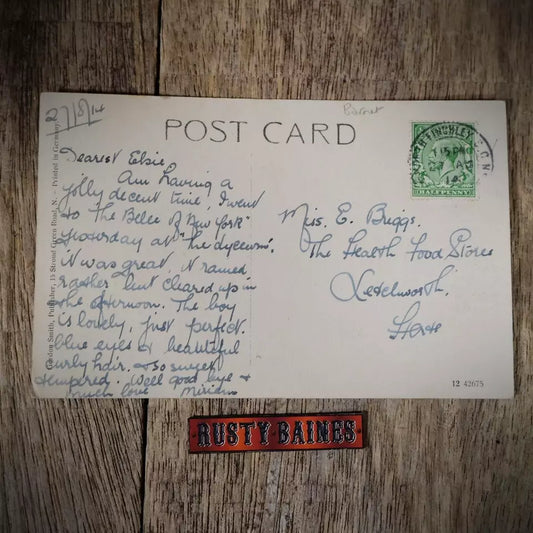 27/8/14
Barnet
POST CARD
NORTH FINCHLEY
7.15 PM
14
HALFPENNY
Dearest Elsie,
Am having a
jolly decent time, I went
to "The Belle of New York"
yesterday at "The Lyceum".
it was great, it rained
rather but cleared up in
the afternoon. The boy
is lovely, just perfect.
blue eyes & beautiful
curly hair, & so sweet
tempered. Well good bye &
much love Miriam
Miss. E. Briggs.
The Health Food Stores
Letchworth.
Herts
Gordon Smith, Publisher, 15 Stroud Green Road, N. - Printed in Germany
12 42675
RUSTY BAINES